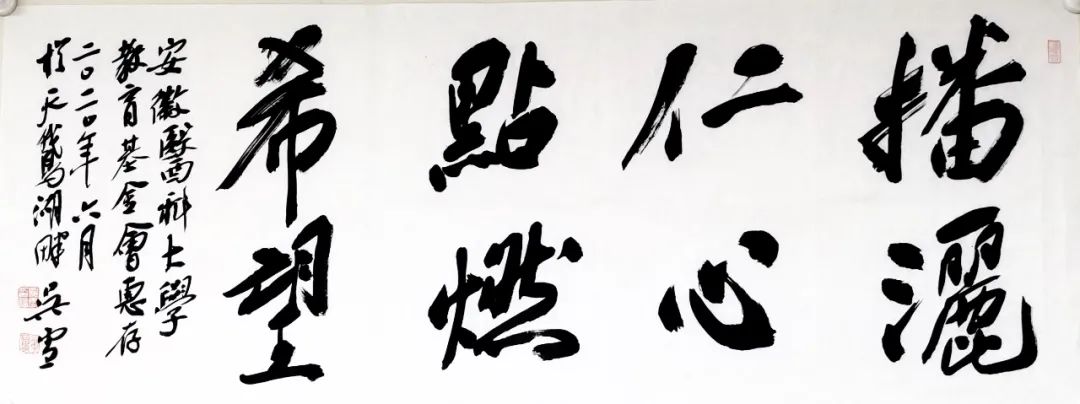 播灑
仁心
點燃
希望
安徽醫科大學
教育基金會惠存
二〇二〇年六月
於天鵝湖畔 吳雪